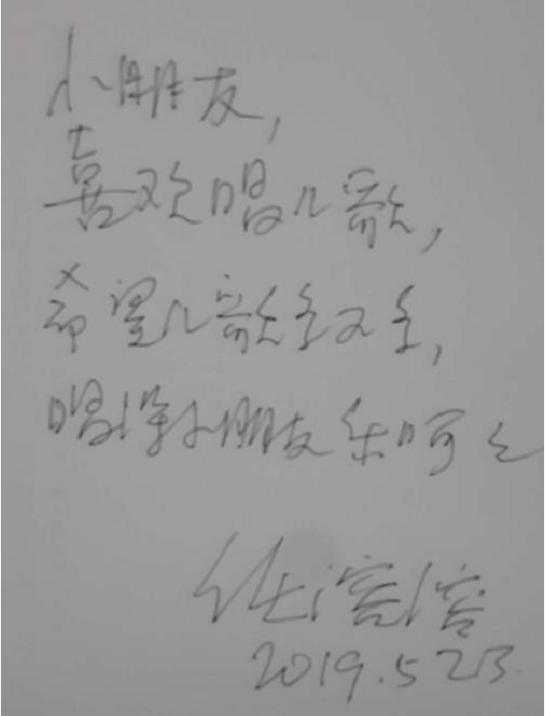 小朋友,
喜欢唱儿歌,
希望儿歌多又多,
唱得小朋友乐呵呵
任溶溶
2019.5.23.